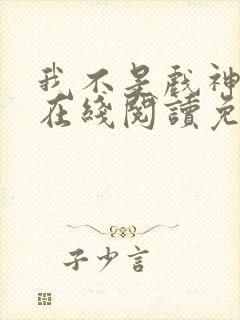 我不是戲神
在綫閱讀免
子少言